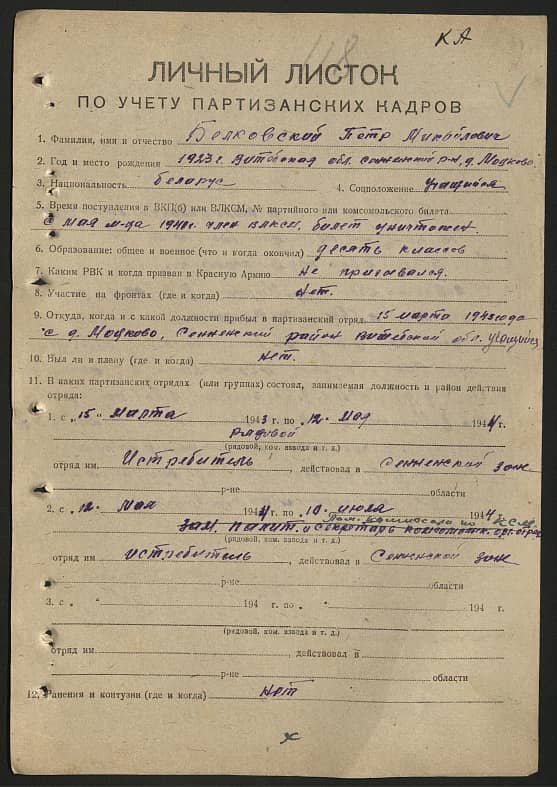 118
КА
ЛИЧНЫЙ ЛИСТОК
ПО УЧЕТУ ПАРТИЗАНСКИХ КАДРОВ
1. Фамилия, имя и отчество Белковский Петр Михайлович
2. Год и место рождения 1923 г. Витебская обл. Сенненский р-н, д. Модково
3. Национальность беларус 4. Соцположение учащийся
5. Время поступления в ВКП(б) или ВЛКСМ, № партийного или комсомольского билета
с мая м-ца 1940 г. член ВЛКСМ, билет уничтожен
6. Образование: общее и военное (что и когда окончил) десять классов
7. Каким РВК и когда призван в Красную Армию Не призывался.
8. Участие на фронтах (где и когда) Нет.
9. Откуда, когда и с какой должности прибыл в партизанский отряд 15 марта 1943 года
с д. Модково, Сенненский район Витебской обл. учащийся
10. Был ли в плену (где и когда) нет.
11. В каких партизанских отрядах (или группах) состоял, занимаемая должность и район действия
отряда:
1. с „15" Марта 1943 г. по „12" Мая 1944 г.
рядовой
(рядовой, ком. взвода и т. д.)
отряд им. Истребитель, действовал в Сенненской зоне
р-не области
2. с „12" Мая 1944 г. по „10" июля 1944 г.
Пом. комиссара по КСМ
зам. полит. и секретарь комсомольск. орг.
(рядовой, ком. взвода и т. д.)
отряд им. Истребитель, действовал в Сенненской зоне
р-не области
3. с „ " 194 г. по „ " 194 г.
(рядовой, ком. взвода и т. д.)
отряд им. действовал в
р-не области
12. Ранения и контузии (где и когда) Нет